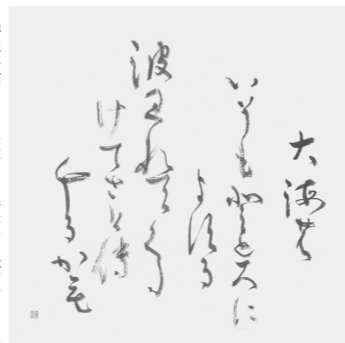 大海の
いそもとどろに
よする
波われてくだ
けてさけて
ちるかも